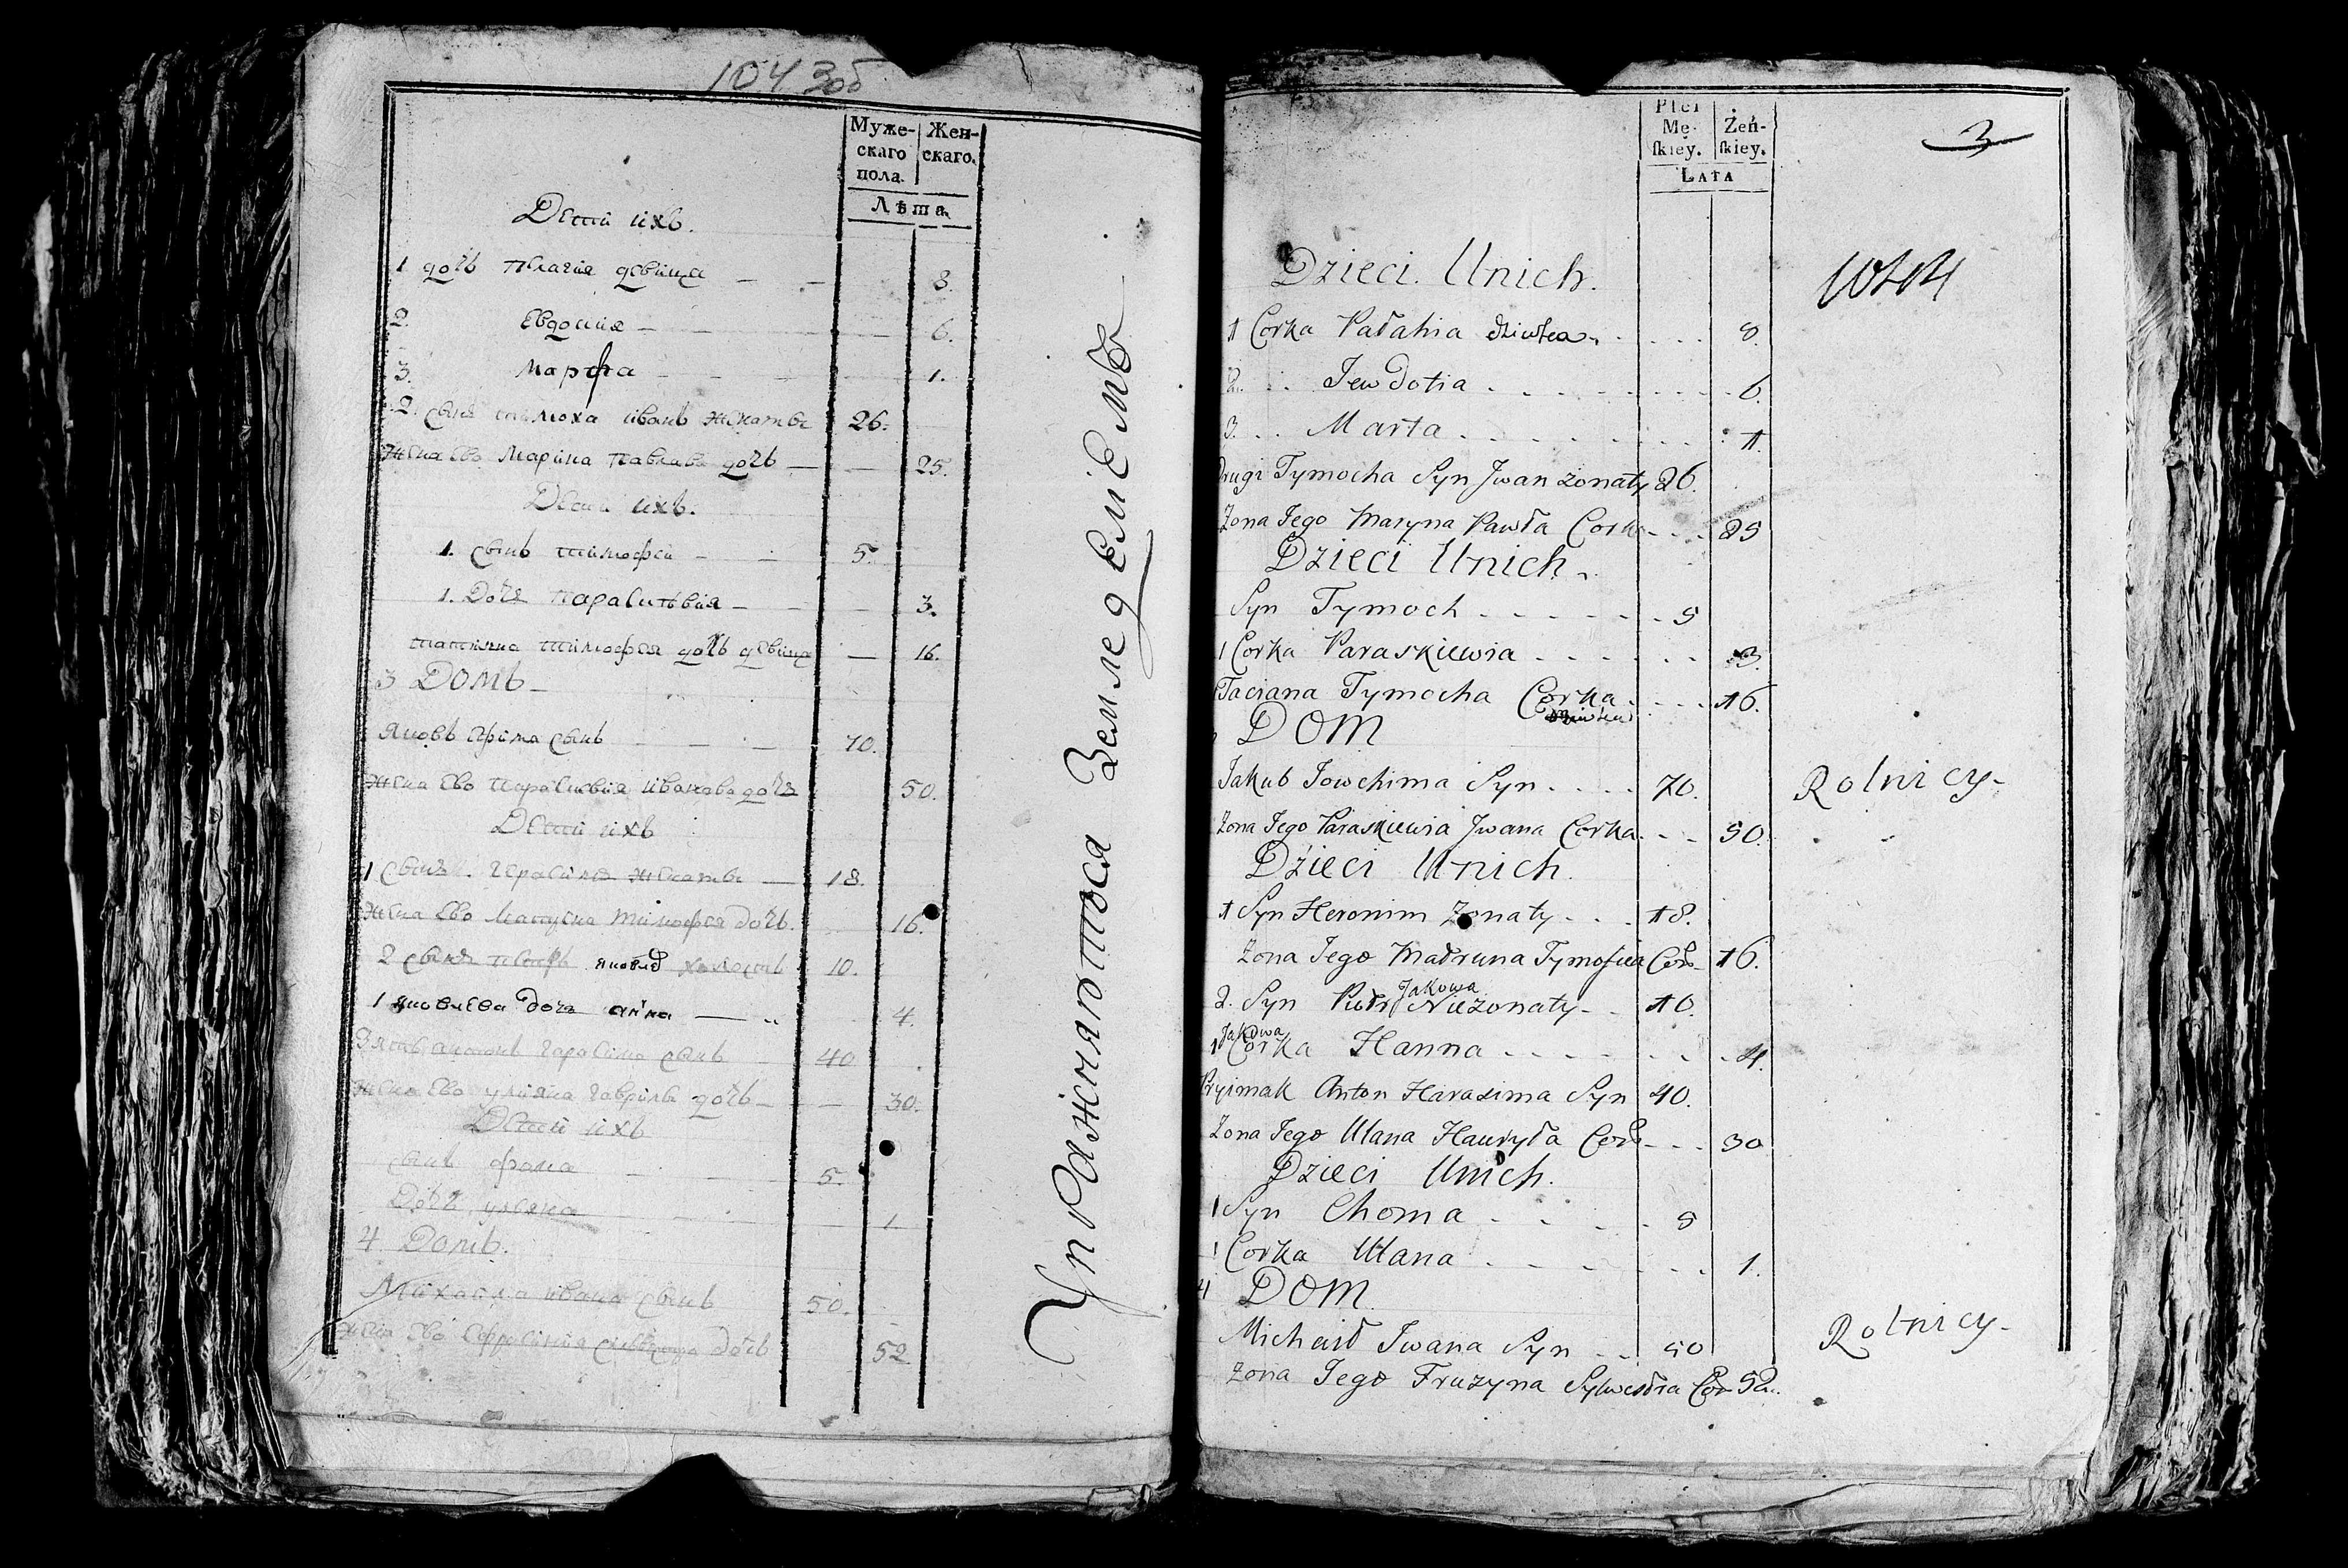 1043об
Муже-
скаго
пола.
Жен-
скаго.
Лѣта
Дети ихъ.
1 дочь Пелагия девица — 8.
2. Евдокия — 6.
3. Марфа — 1.
2. сынъ тимоха иванъ женатъ 26.
жена ево Марина павлова дочь — 25.
Дети ихъ.
1. сынъ тимофей — 5.
1. Дочь параскѣвия — 3.
татияна тимофея дочь девица — 16.
3 Домъ
Яковъ Ефима сынъ — 70.
жена ево параскевия иванова дочь 50.
Дети ихъ
1 сынъ герасимъ женатъ — 18.
жена ево тимофея дочь. 16.
2 сынъ петръ яковлев холостъ 10.
1 яковлева дочь анна — 4.
Зять антонъ гарасима сынъ 40
жена ево улияна гаврила дочь — 30.
Дети ихъ
сынъ фома 5.
Дочь уляна 1
4 Домъ.
Михайла ивана сынъ 50.
жена ево Ефросиния дочь 52
Упражняются Земледелиемъ
Płci
Mę-
ſkiey.
Żeń-
ſkiey.
LATA
3
1044
Dzieci Unich.
1 Corka Pałahia dziewka 8.
2. Jewdotia 6.
3. Marta 1.
Drugi Tymocha Syn Jwan zonaty 26.
Zona Jego Maryna Pawła Corka 25
Dzieci Unich.
Syn Tymoch 5
1 Corka Paraskiewia 3.
Taciana Tymocha Corka 16.
dziewka
DOM
Jakub Jowchima Syn 70.
Rolnicy
Zona Jego Paraskiewia Jwana Corka 50.
Dzieci Unich.
1 Syn Heronim Zonaty 18.
Zona Jego Matruna Tymofieia Cor 16.
2. Syn Piotr Jakowa Niezonaty 10.
1 Jakowa Corka Hanna 4.
Pryimak Anton Harasima Syn 40.
Zona Jego Ulana Hauryła Cor 30
Dzieci Unich.
1 Syn Choma 5
1 Corka Ulana 1.
4 DOM
Michaił Jwana Syn 50
Rolnicy
Zona Jego Fruzyna Sylwestra Cor 52.